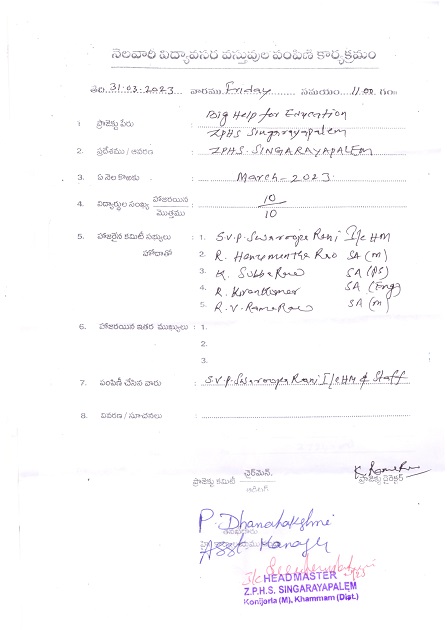 నెలవారి విద్యావసర వస్తువుల పంపిణి కార్యక్రమం
తేది 31-03-2023 వారము Friday సమయం 11.00 గం॥
1 ప్రాజెక్టు పేరు : Big Help for Education
ZPHS Singarayapalem
2. ప్రదేశము / ఆవరణ : ZPHS. SINGARAYAPALEM
3. ఏ నెల కొఱకు : March-2023.
4. విద్యార్థుల సంఖ్య హాజరయిన / మొత్తము : 10/10
5. హాజరైన కమిటీ సభ్యులు : 1. S.V.P. Swaroopa Rani I/c HM
హోదాతో 2. R. Hanumantha Rao SA (M)
3. K. Subba Rao SA (PS)
4. R. Kiran Kumar SA (Eng)
5. R.V. Rama Rao SA (M)
6. హాజరయిన ఇతర ముఖ్యులు : 1.
2.
3.
7. పంపిణీ చేసిన వారు : S.V.P. Swaroopa Rani I/c HM & Staff
8. వివరణ / సూచనలు :
ప్రాజెక్టు కమిటీ ఛైర్మెన్. ప్రాజెక్టు డైరెక్టర్
P. Dhanalakshmi
Asst Manager
I/c HEADMASTER
Z.P.H.S. SINGARAYAPALEM
Konijerla (M), Khammam (Dist.)